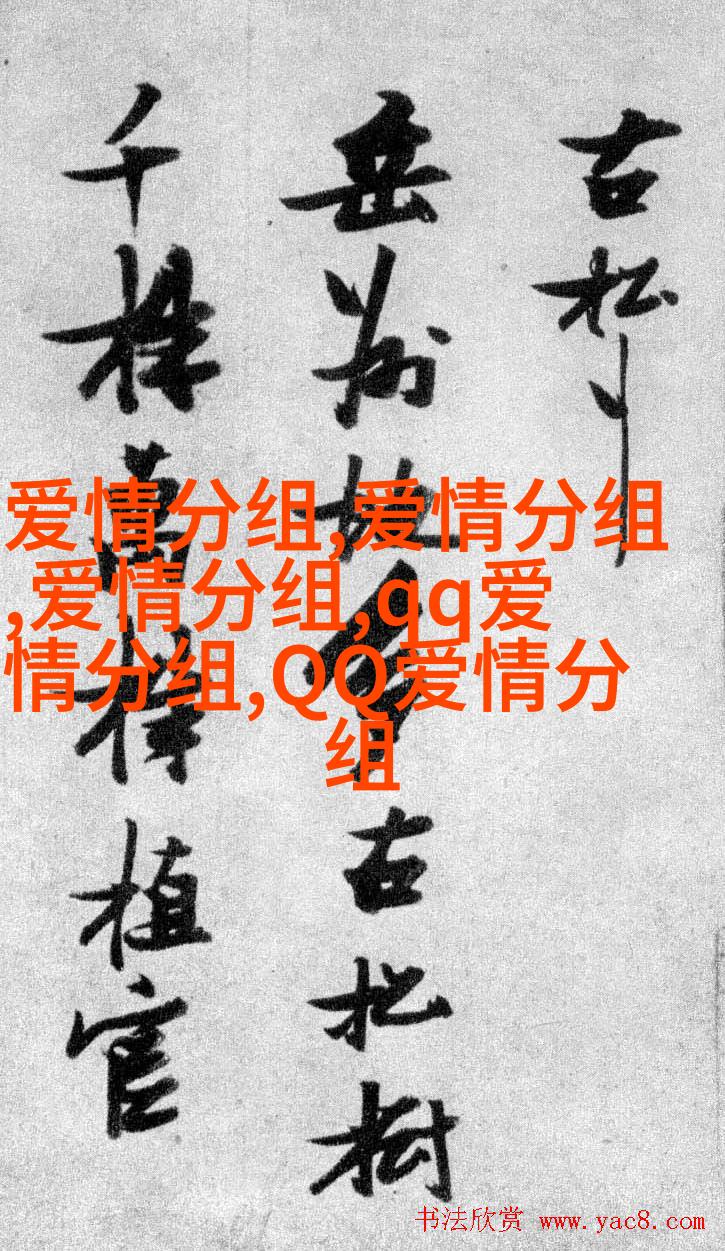 古松
岳州地多古松樹
千株萬株植官
爱情分组,爱情分组
,爱情分组,qq爱
情分组,QQ爱情分
组
书法欣赏 www.yac8.com